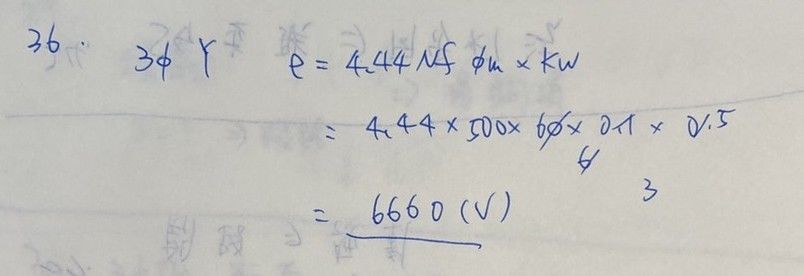 36. 3ϕ Y e = 4.44 Nf ϕm × Kw
= 4.44 × 500 × 60 × 0.1 × 0.5
6 3
= 6660 (V)